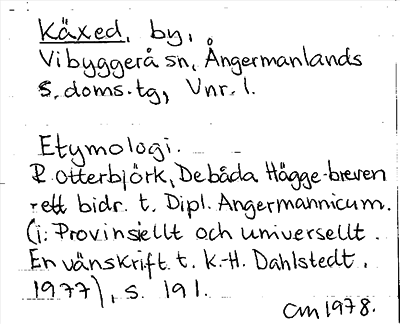 Käxed, by,
Vibyggerå sn, Ångermanlands
s. doms.tg, Vnr. 1.
Etymologi.
R Otterbjörk, De båda Hägge-breven
- ett bidr. t. Dipl. Angermannicum.
(i: Provinsiellt och universellt.
En vänskrift t. K.-H. Dahlstedt.
1977), s. 191.
CM 1978.